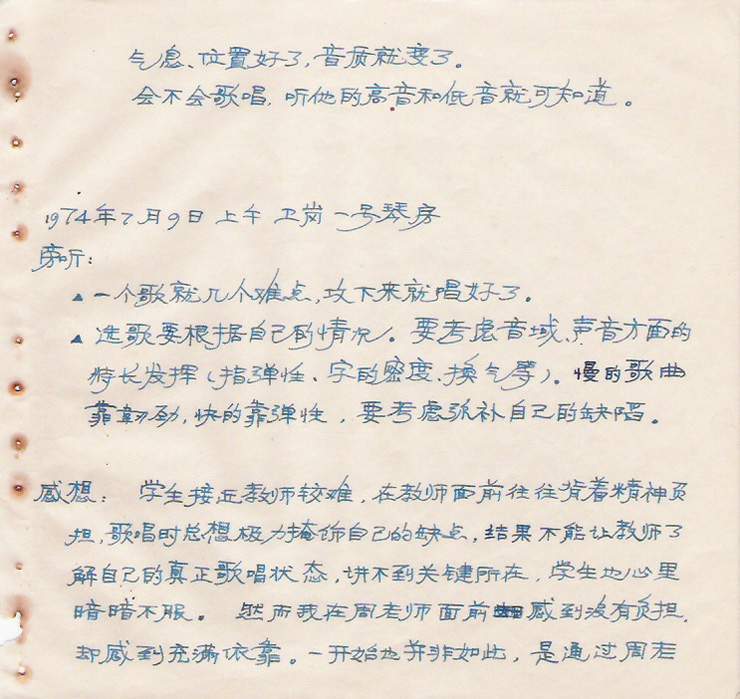 气息、位置好了,音质就变了。
会不会歌唱,听他的高音和低音就可知道。
1974年7月9日 上午 卫岗 一号琴房
旁听:
▲ 一个歌就几个难点,攻下来就唱好了。
▲ 选歌要根据自己的情况。要考虑音域、声音方面的
特长发挥(指弹性、字的密度、换气等)。慢的歌曲
靠韧劲,快的靠弹性,要考虑弥补自己的缺陷。
感想: 学生接近教师较难,在教师面前往往背着精神负
担,歌唱时总想极力掩饰自己的缺点,结果不能让教师了
解自己的真正歌唱状态,讲不到关键所在,学生也心里
暗暗不服。 然而我在周老师面前感到没有负担,
却感到充满依靠。一开始也并非如此,是通过周老